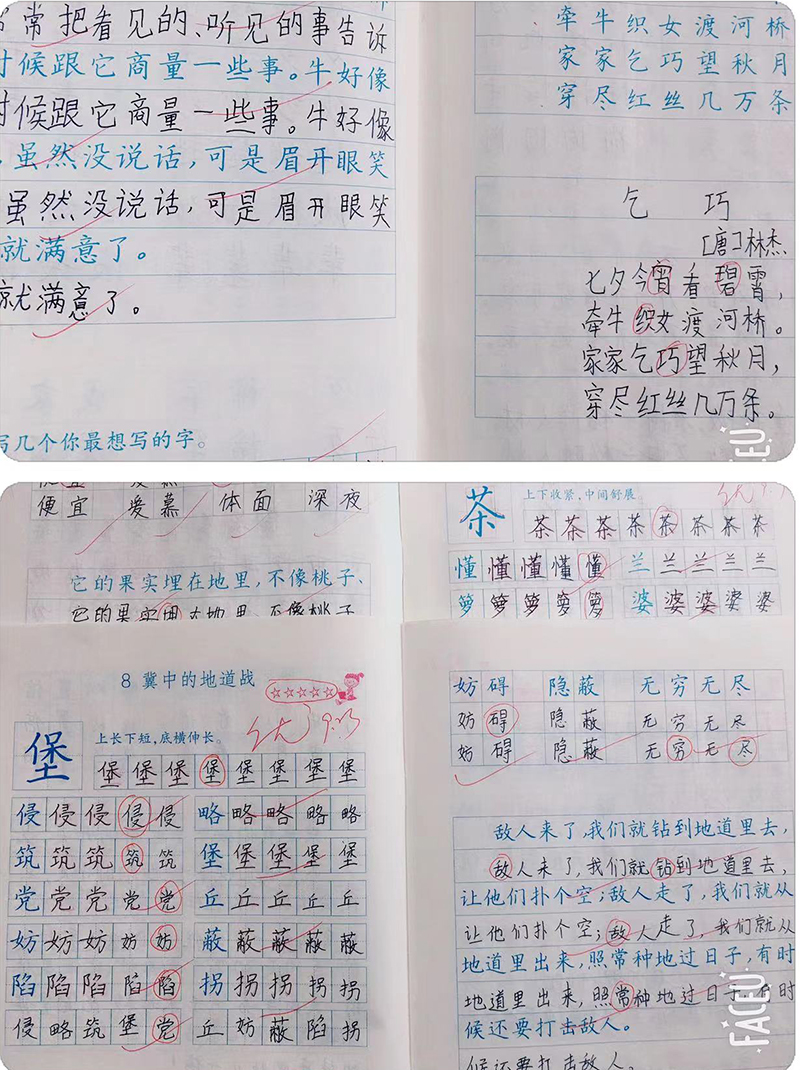 常把看见的、听见的事告诉
时候跟它商量一些事。牛好像
时候跟它商量一些事。牛好像
虽然没说话，可是眉开眼笑
虽然没说话，可是眉开眼笑
就满意了。
就满意了。
写几个你最想写的字。
牵牛织女渡河桥
家家乞巧望秋月
穿尽红丝几万条
乞巧
[唐]林杰
七夕今宵看碧霄，
牵牛织女渡河桥。
家家乞巧望秋月，
穿尽红丝几万条。
FACEU
便宜 爱慕 体面 深夜
它的果实埋在地里，不像桃子、
它的果实埋在地里，不像桃子
茶
上下收紧，中间舒展。
茶茶茶茶茶茶茶茶
懂懂懂懂懂 兰兰兰兰兰
箩箩箩箩箩 婆婆婆婆婆
8 冀中的地道战
优 9.23
堡
上长下短，底横伸长。
堡堡堡堡堡堡堡堡
侵侵侵侵侵 略略略略略
筑筑筑筑筑 堡堡堡堡堡
党党党党党 丘丘丘丘丘
妨妨妨妨妨 蔽蔽蔽蔽蔽
陷陷陷陷陷 拐拐拐拐拐
侵略筑堡党 丘妨蔽陷拐
妨碍 隐蔽 无穷无尽
妨碍 隐蔽 无穷无尽
妨碍 隐蔽 无穷无尽
敌人来了，我们就钻到地道里去，
敌人来了，我们就钻到地道里去，
让他们扑个空；敌人走了，我们就从
让他们扑个空；敌人走了，我们就从
地道里出来，照常种地过日子，有时
地道里出来，照常种地过日子，有时
候还要打击敌人。
候还要打击敌人。
FACEU